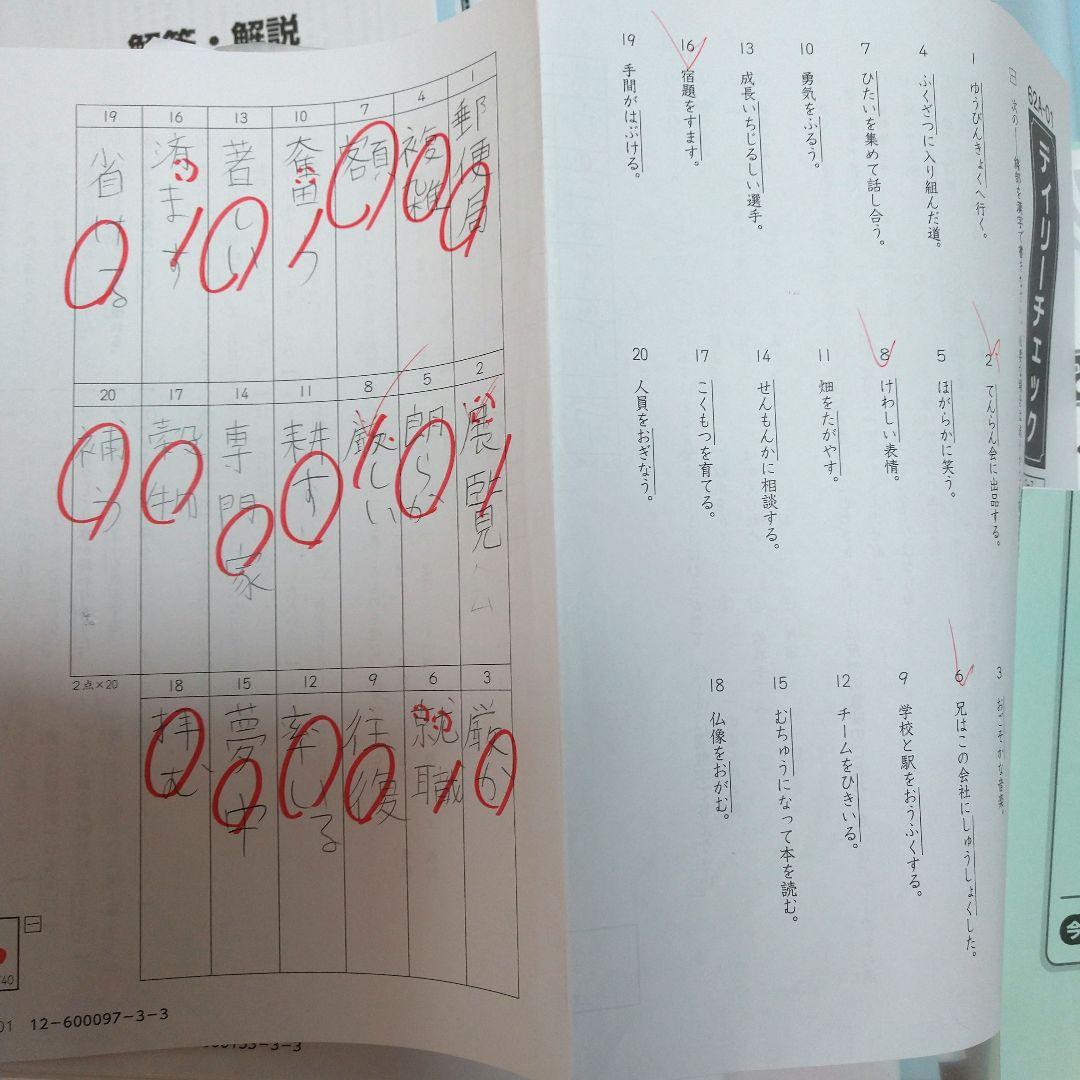 解答・解説
62A-01
デイリーチェック
一
1 ゆうびんきょくへ行く。
2 てんらん会に出品する。
3 おごそかな音楽。
4 ふくざつに入り組んだ道。
5 ほがらかに笑う。
6 兄はこの会社にしゅうしょくした。
7 ひたいを集めて話し合う。
8 けわしい表情。
9 学校と駅をおうふくする。
10 勇気をふるう。
11 畑をたがやす。
12 チームをひきいる。
13 成長いちじるしい選手。
14 せんもんかに相談する。
15 むちゅうになって本を読む。
16 宿題をすます。
17 こくもつを育てる。
18 仏像をおがむ。
19 手間がはぶける。
20 人員をおぎなう。
1 郵便局
4 複雑
7 額
10 奮う
13 著しい
16 済ます
19 省ける
2 展覧
5 朗らか
8 厳しい
11 耕す
14 専門家
17 穀物
20 補う
3 厳か
6 就職
9 往復
12 率いる
15 夢中
18 拝む
2点×20
一
40
01 12-600097-3-3
今